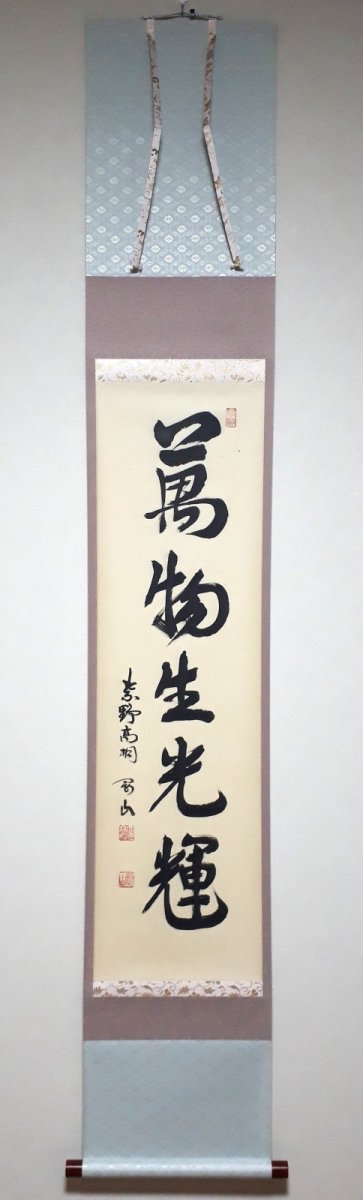 萬物生光輝
紫野高桐 寛山